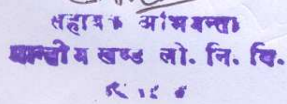 सहायक अभियन्ता
प्रान्तीय खण्ड लो. नि. वि.